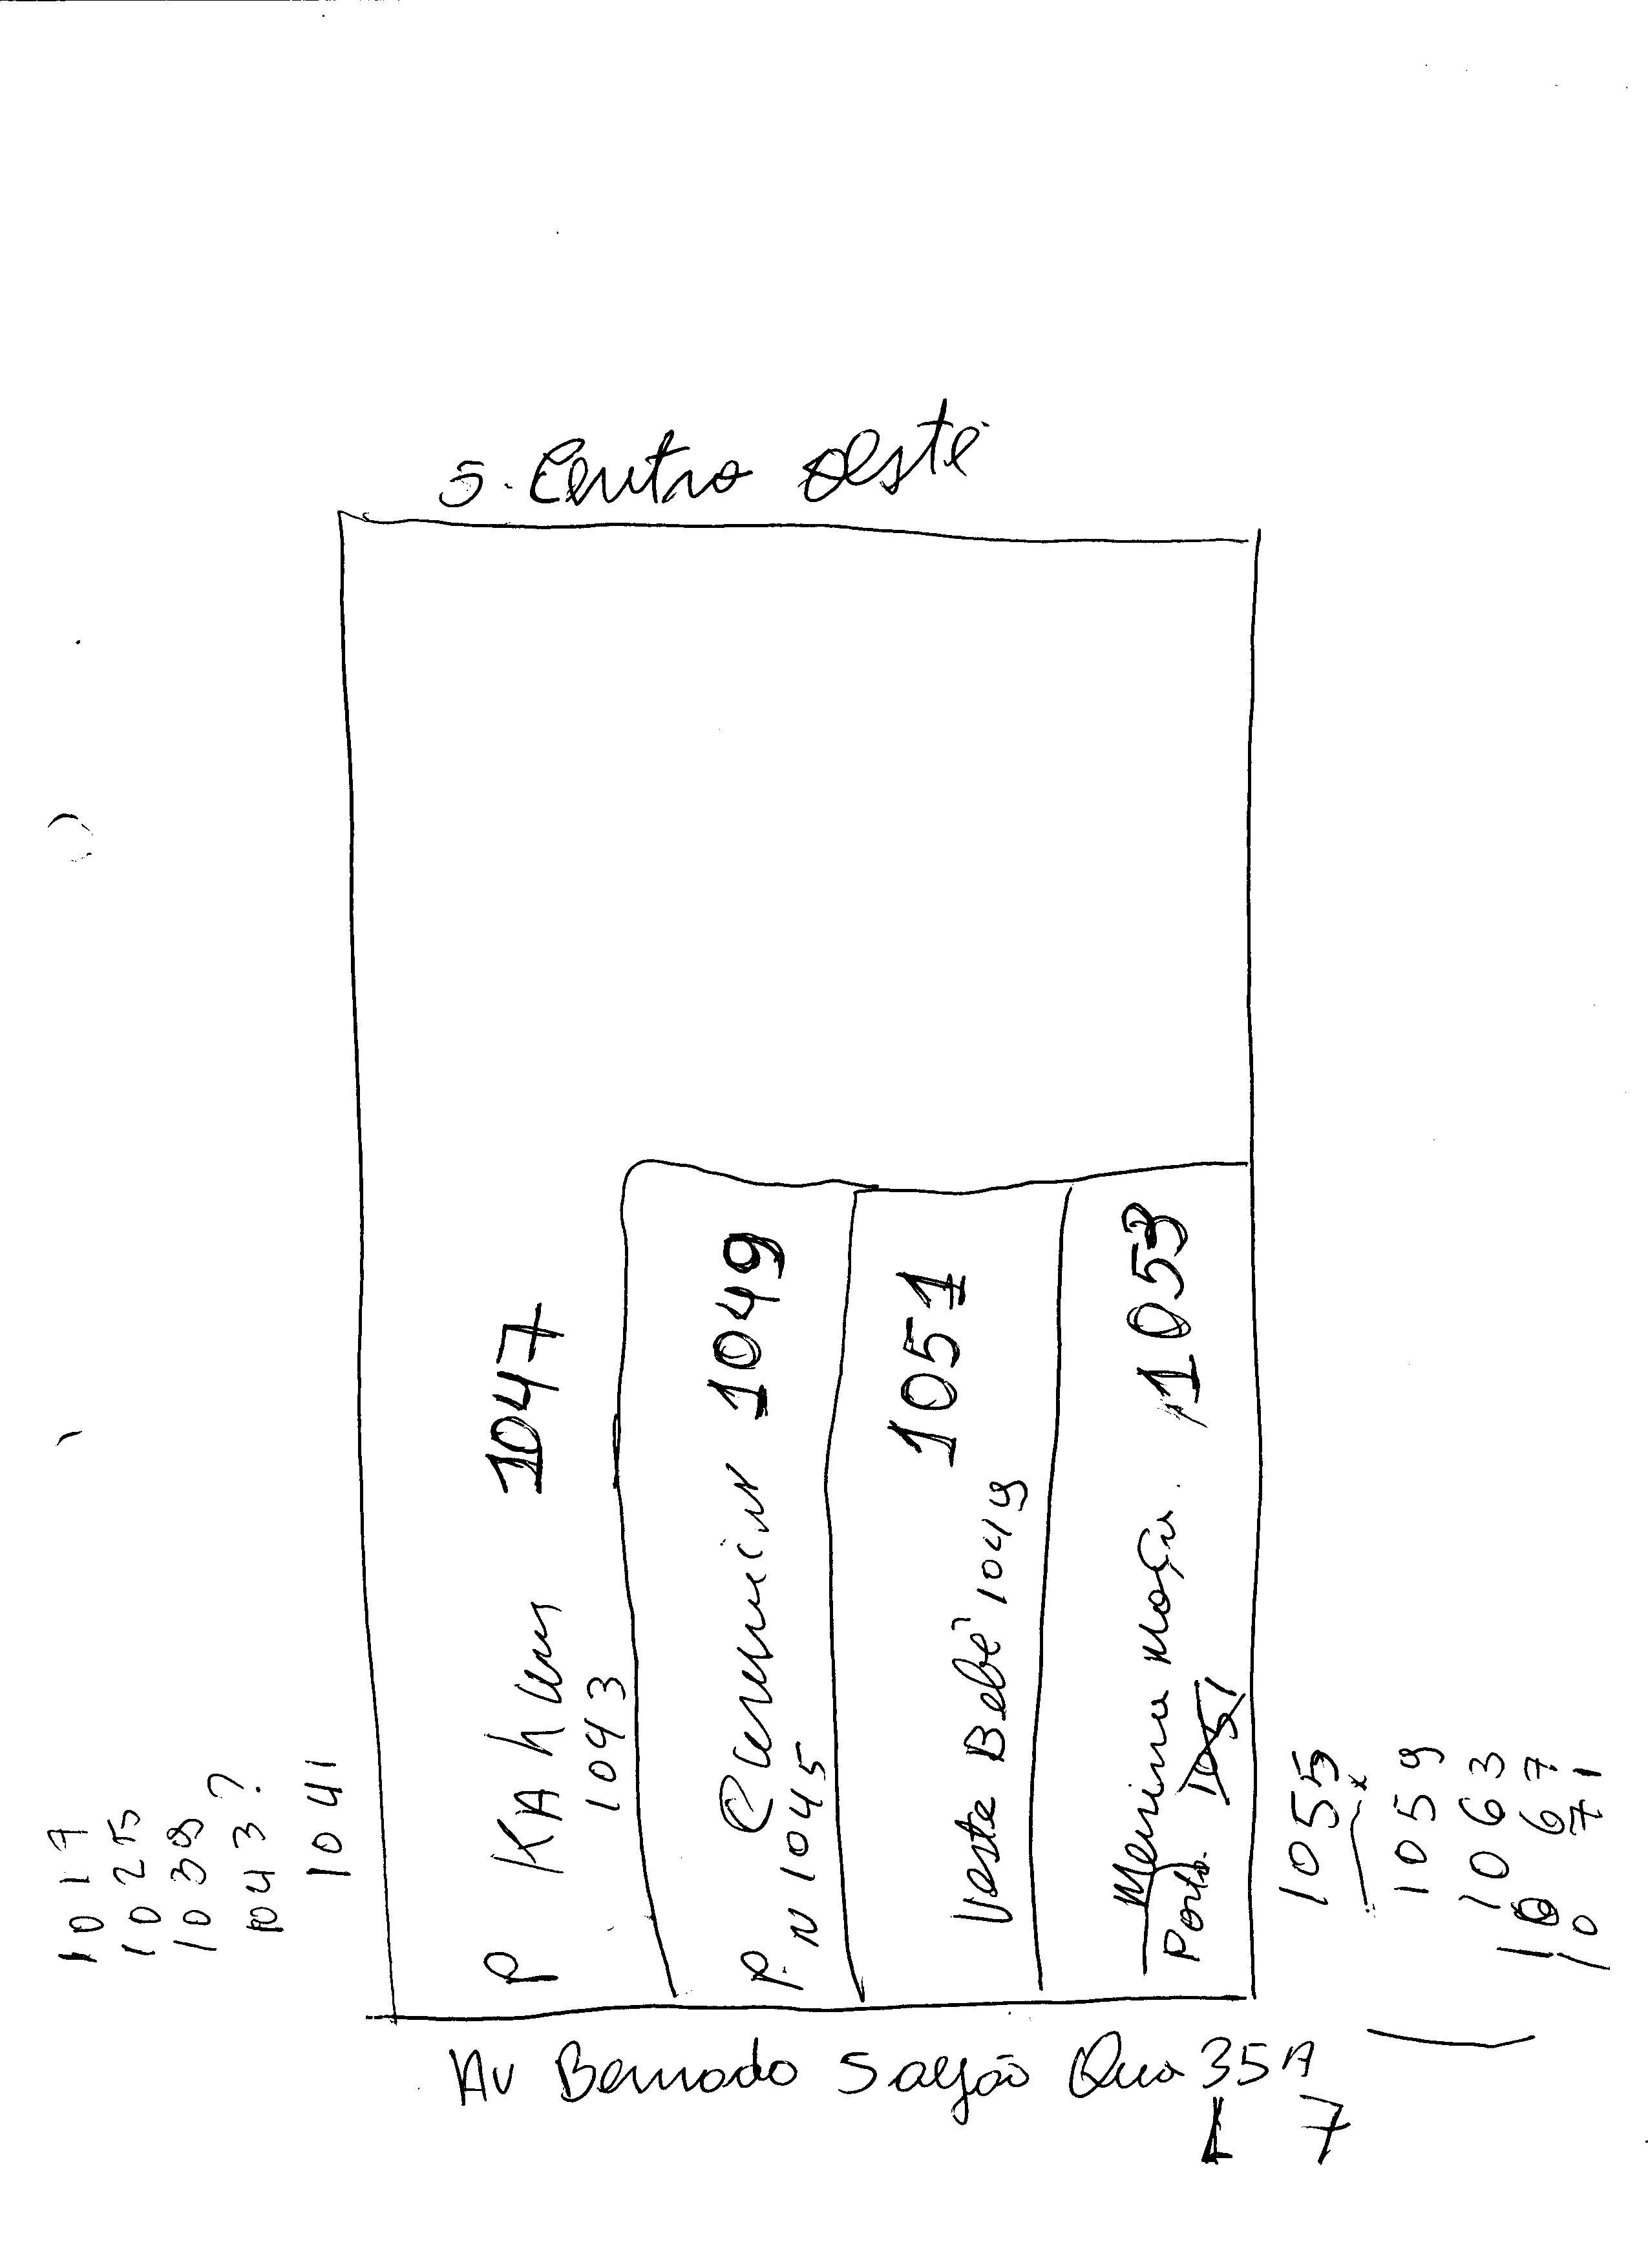 S. Centro Oeste
1017
1025
1039
1043?
1041
P 1047
1043
P. 1049
N 1045
Veste Bebê 1049 1051
Menina Moça. 1053
Porta. 1051
1055
1059
1063
1067
1071
Av Bernardo Sayão Qua 35A
L 7